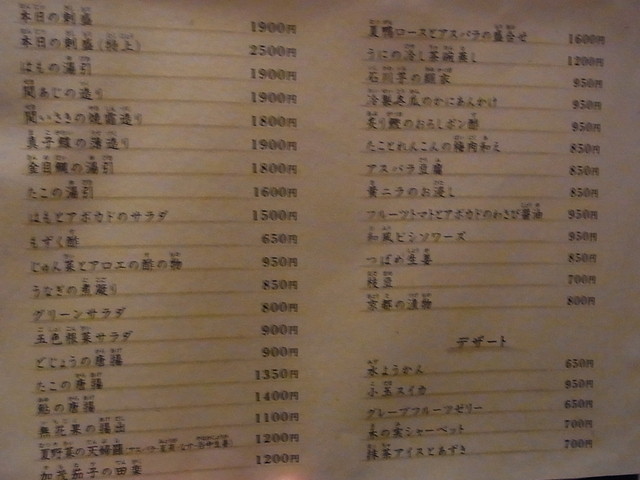 本日の刺盛 1900円
本日の刺盛(特上) 2500円
はもの湯引 1900円
関あじの造り 1900円
関いさきの焼霜造り 1800円
真子鰈の薄造り 1900円
金目鯛の湯引 1800円
たこの湯引 1600円
はもとアボカドのサラダ 1500円
もずく酢 650円
じゅん菜とアロエの酢の物 950円
うなぎの煮凝り 850円
グリーンサラダ 800円
五色根菜サラダ 900円
どじょうの唐揚 900円
たこの唐揚 1350円
鮎の唐揚 1400円
無花果の揚出 1100円
夏野菜の天婦羅 1200円
加茂茄子の田楽 1200円
夏鴨ロースとアスパラの盛合せ 1600円
うにの冷し茶碗蒸し 1200円
石川芋の 950円
冷製冬瓜のかにあんかけ 950円
炙り鰹のおろしポン酢 950円
たことれんこんの梅肉和え 850円
アスパラ豆腐 850円
黄ニラのお浸し 850円
フルーツトマトとアボカドのわさび醤油 950円
和風ビシソワーズ 950円
つばめ生姜 850円
枝豆 700円
京都の漬物 800円
デザート
水ようかん 650円
小玉スイカ 950円
グレープフルーツゼリー 650円
シャーベット 700円
抹茶アイスとあずき 700円